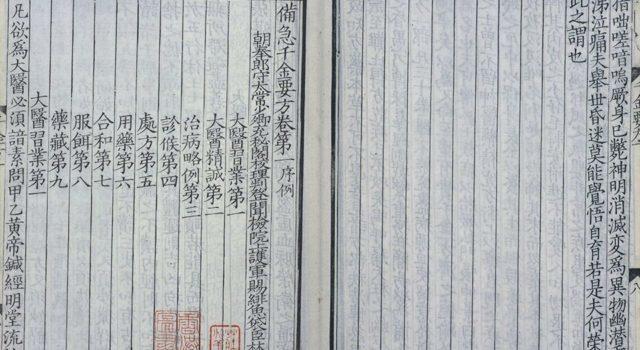 指咄嗟喑嗚厥身已斃神明消滅變爲異物幽潛
涕泣痛夫舉世昏迷莫能覺悟自育若是夫何榮
此之謂也
備急千金要方卷第一序例
朝奉郎守太常少卿充秘閣校理判登聞檢院上護軍賜緋魚袋臣林
大醫習業第一
大醫精誠第二
治病略例第三
診候第四
處方第五
用藥第六
合和第七
服餌第八
藥藏第九
大醫習業第一
凡欲爲大醫必須諳素問甲乙黃帝鍼經明堂流